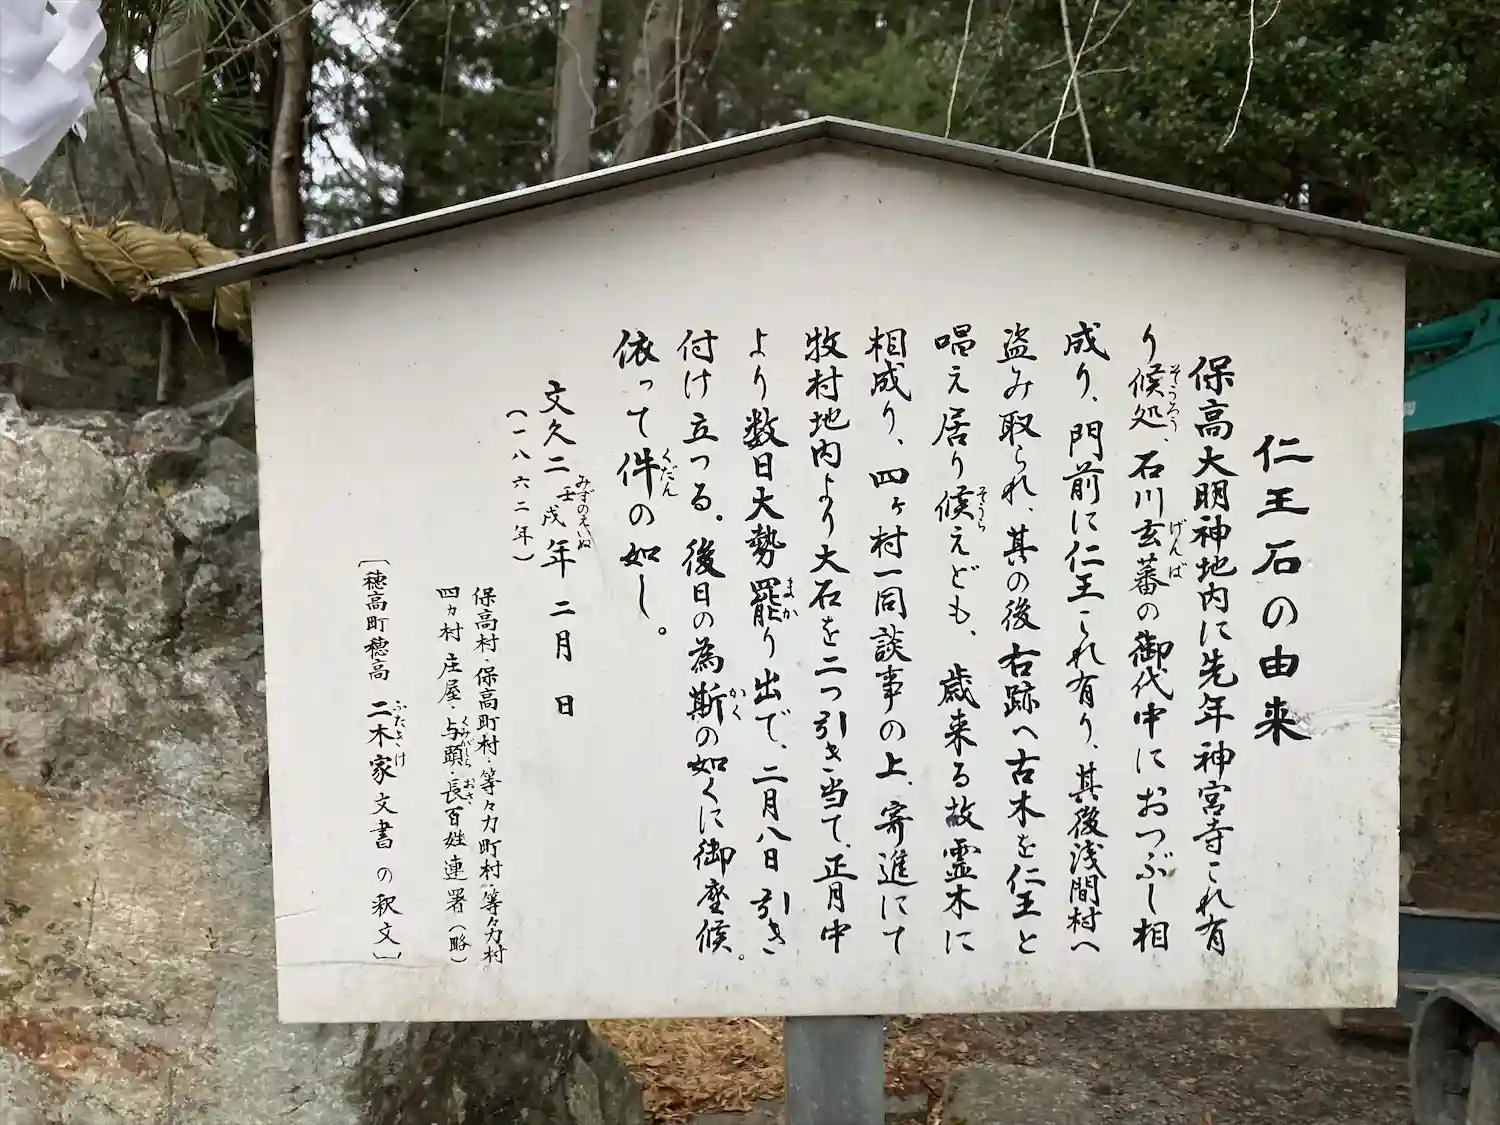 仁王石の由来
保高大明神地内に先年神宮寺これ有
り候処、石川玄蕃の御代中におつぶし相
成り、門前に仁王これ有り、其後浅間村へ
盗み取られ、其の後右跡へ古木を仁王と
唱え居り候えども、歳来る故霊木に
相成り、四ヶ村一同談事の上、寄進にて
牧村地内より大石を二つ引き当て、正月中
より数日大勢罷り出で、二月八日引き
付け立つる。後日の為斯の如くに御座候。
依って件の如し。
文久二壬戌年 二月 日
(一八六二年)
保高村・保高町村・等々力町村・等々力村
四ヵ村庄屋・与頭・長百姓連署(略)
〔穂高町穂高 二木家文書の釈文〕